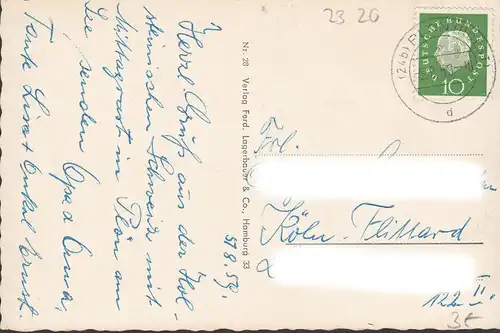 23 20
(24b) P
DEUTSCHE BUNDESPOST
10
d
Herzl. Grüße aus der Hol-
steinischen Schweiz mit
Mittagsrast in Plön am
See senden Opa & Oma,
Tante Lisa + Onkel Ernst.
5.8.59.
Nr. 28 Verlag Ferd. Lagerbauer & Co., Hamburg 33
Frl.
Köln-Flittard
122 II.
3€